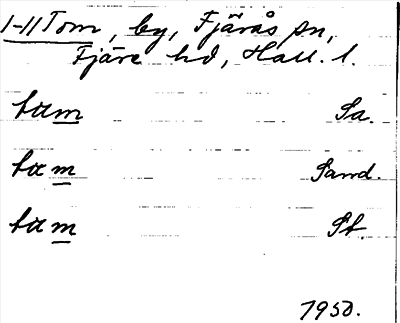 1-11 Tom, by, Fjärås sn,
Fjäre hd, Hall. l.
tɑm Sa.
tɑm Sand.
tɑm St.
1950.